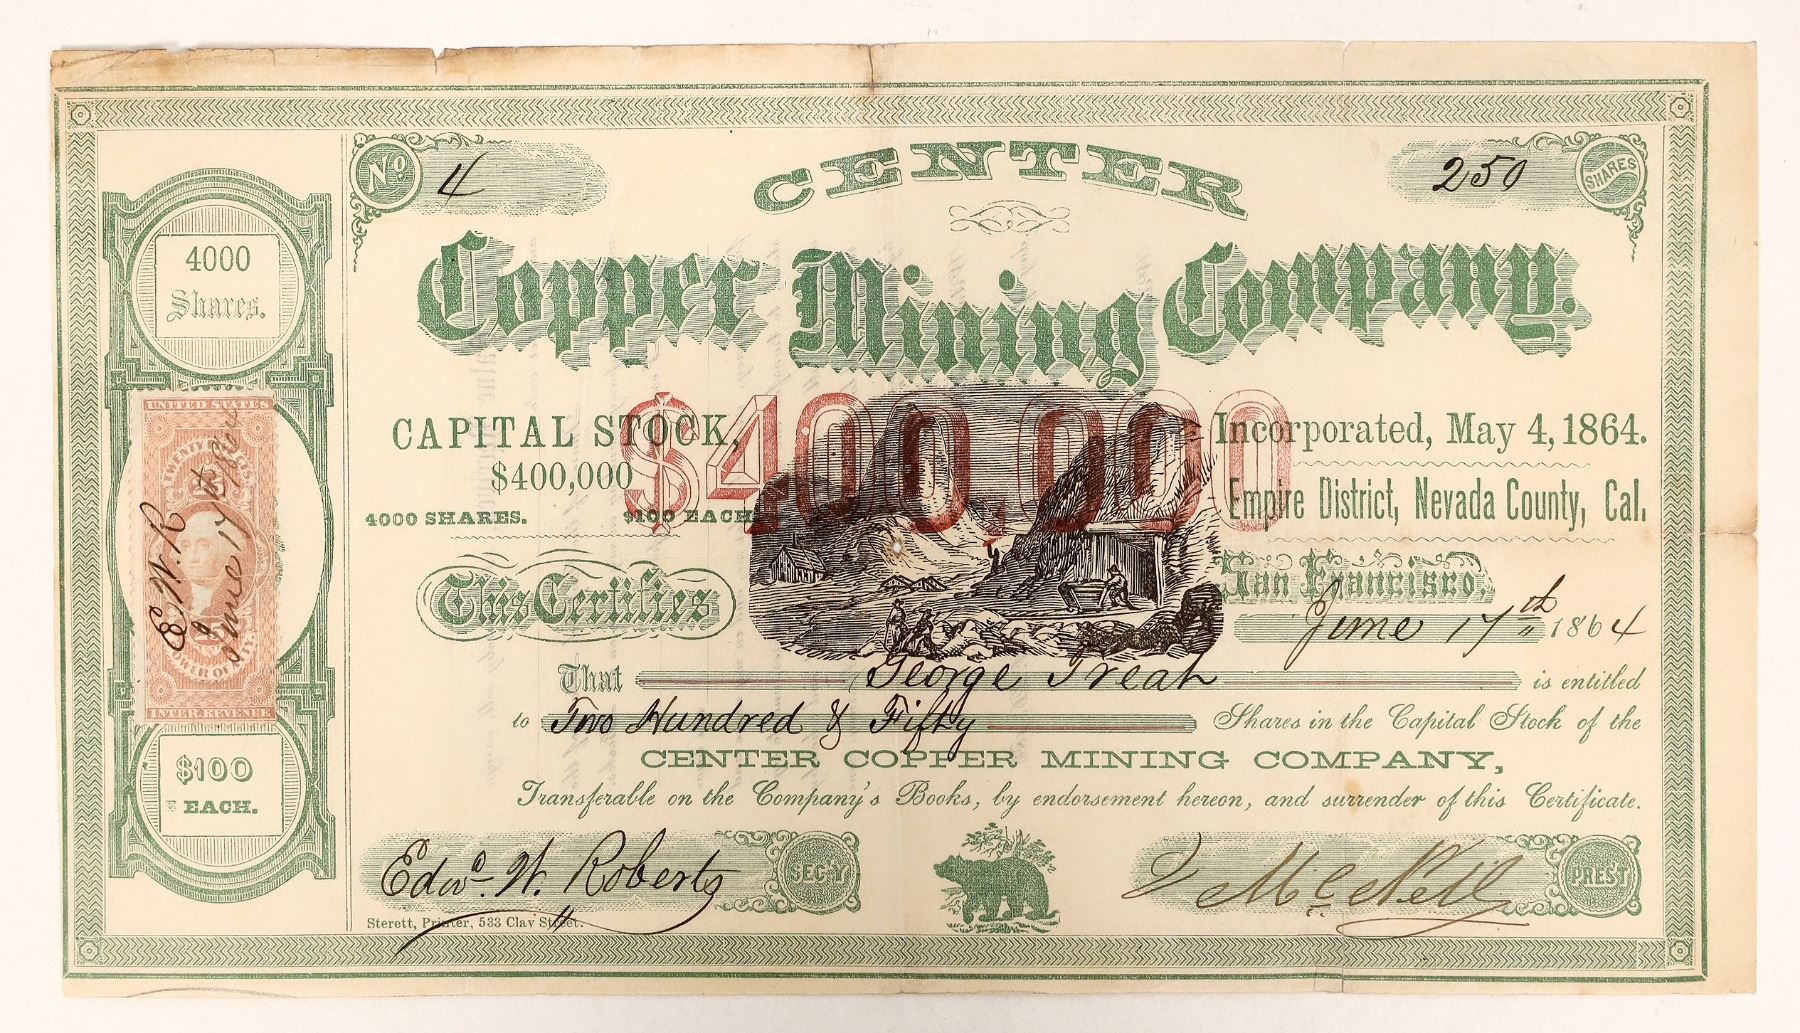 No 4
250 SHARES
CENTER
Copper Mining Company.
4000
Shares.
$400,000
CAPITAL STOCK,
$400,000
4000 SHARES. $100 EACH
Incorporated, May 4, 1864.
Empire District, Nevada County, Cal.
UNITED STATES
E. W. R
June 17th
INTER. REVENUE
This Certifies
San Francisco,
June 17th 1864
That George Treat is entitled
to Two Hundred & Fifty Shares in the Capital Stock of the
CENTER COPPER MINING COMPANY,
Transferable on the Company's Books, by endorsement hereon, and surrender of this Certificate.
$100
EACH.
Edwd. W. Roberts SEC'Y
McNeil PREST
Sterett, Printer, 533 Clay Street.